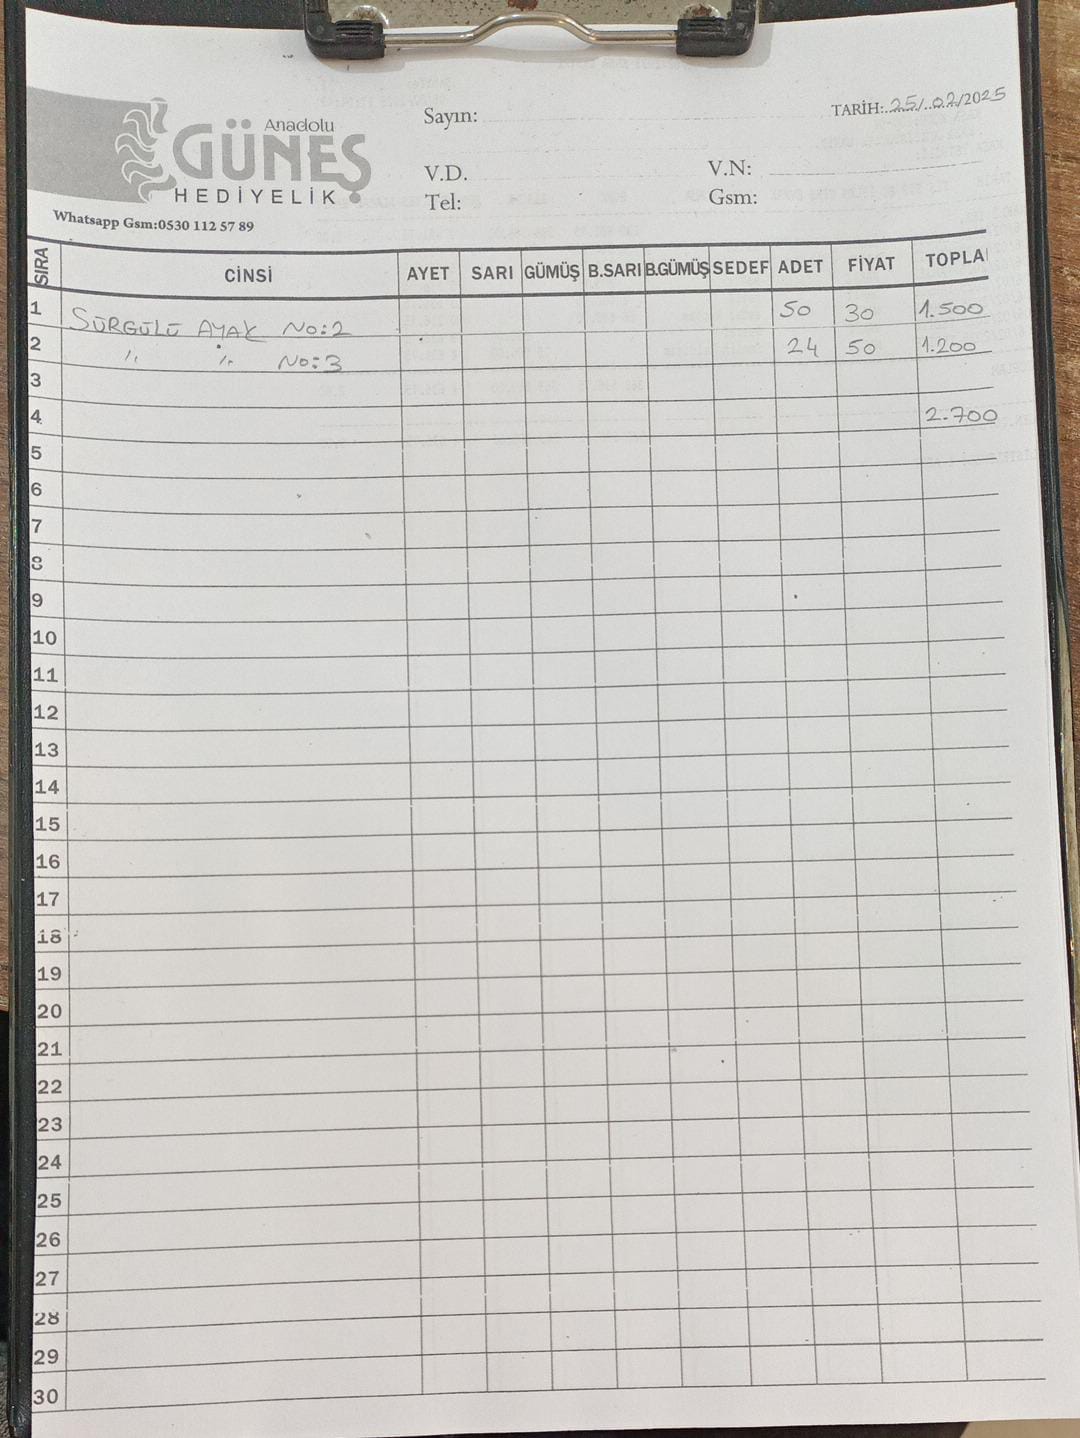 Anadolu
GÜNEŞ
HEDİYELİK
Whatsapp Gsm:0530 112 57 89
Sayın:
TARİH: 25/02/2025
V.D.
V.N:
Tel:
Gsm:
SIRA CİNSİ AYET SARI GÜMÜŞ B.SARI B.GÜMÜŞ SEDEF ADET FİYAT TOPLA
1 SÜRGÜLÜ AYAK No:2 50 30 1.500
2 " " No:3 24 50 1.200
3
4 2.700
5
6
7
8
9
10
11
12
13
14
15
16
17
18
19
20
21
22
23
24
25
26
27
28
29
30